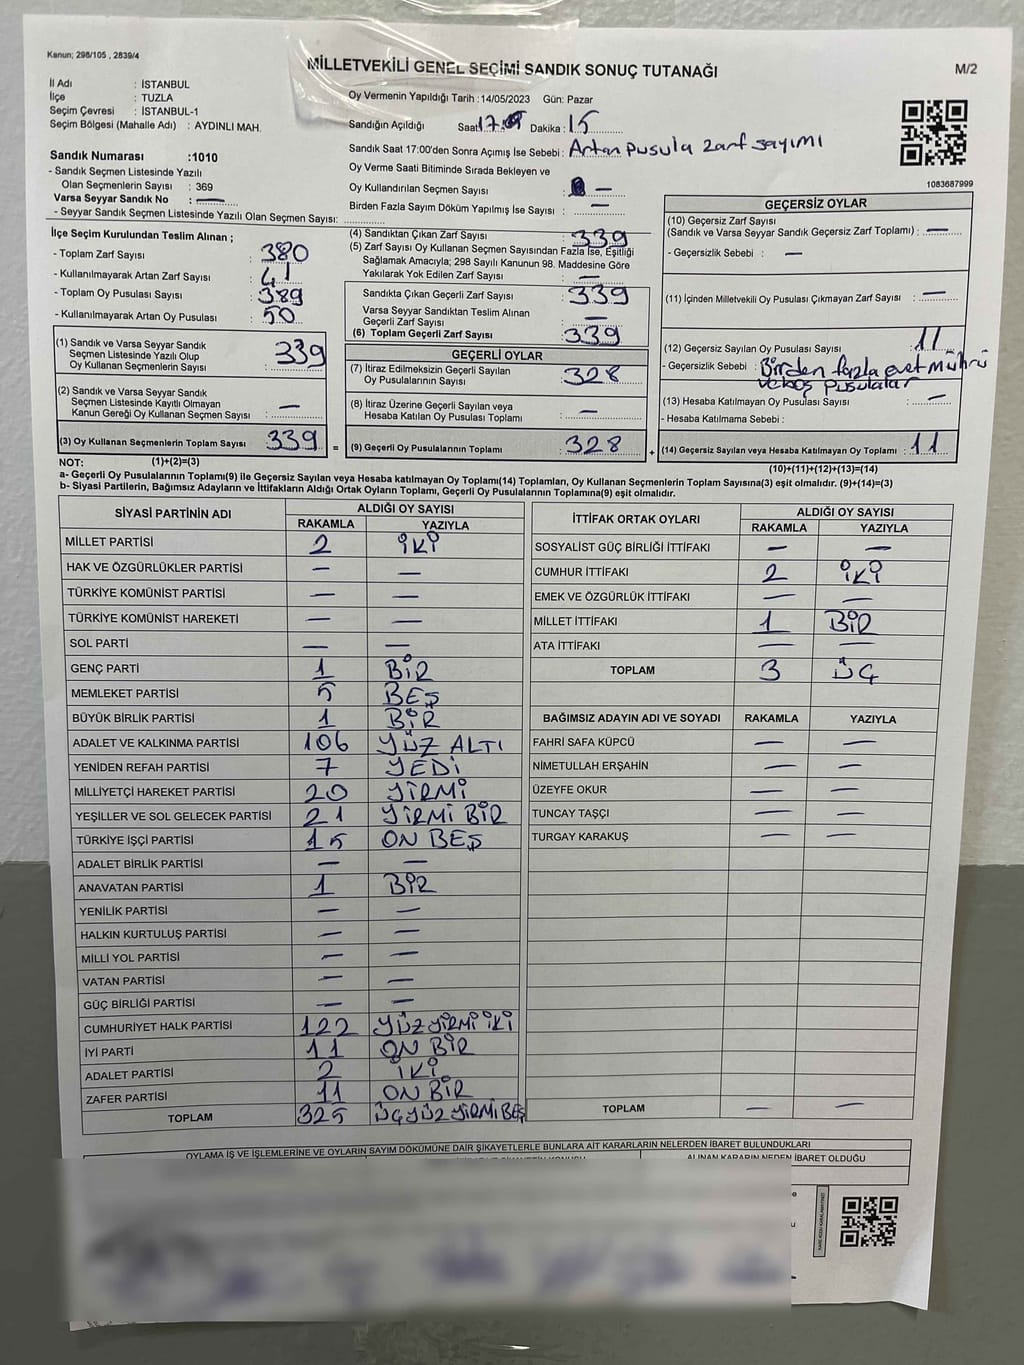 Kanun; 298/105 , 2839/4
MİLLETVEKİLİ GENEL SEÇİMİ SANDIK SONUÇ TUTANAĞI
M/2
İl Adı : İSTANBUL
İlçe : TUZLA
Seçim Çevresi : İSTANBUL-1
Seçim Bölgesi (Mahalle Adı) : AYDINLI MAH.
Oy Vermenin Yapıldığı Tarih : 14/05/2023 Gün: Pazar
Sandığın Açıldığı Saat: 17 Dakika : 15
Sandık Saat 17:00'den Sonra Açımış İse Sebebi : Artan pusula zarf sayımı
Oy Verme Saati Bitiminde Sırada Bekleyen ve
Oy Kullandırılan Seçmen Sayısı : —
Birden Fazla Sayım Döküm Yapılmış İse Sayısı : —
1083687999
Sandık Numarası :1010
- Sandık Seçmen Listesinde Yazılı
Olan Seçmenlerin Sayısı : 369
Varsa Seyyar Sandık No : —
- Seyyar Sandık Seçmen Listesinde Yazılı Olan Seçmen Sayısı:
İlçe Seçim Kurulundan Teslim Alınan ;
- Toplam Zarf Sayısı : 380
- Kullanılmayarak Artan Zarf Sayısı : 41
- Toplam Oy Pusulası Sayısı : 389
- Kullanılmayarak Artan Oy Pusulası : 50
(1) Sandık ve Varsa Seyyar Sandık
Seçmen Listesinde Yazılı Olup
Oy Kullanan Seçmenlerin Sayısı : 339
(2) Sandık ve Varsa Seyyar Sandık
Seçmen Listesinde Kayıtlı Olmayan
Kanun Gereği Oy Kullanan Seçmen Sayısı : —
(3) Oy Kullanan Seçmenlerin Toplam Sayısı : 339 =
(4) Sandıktan Çıkan Zarf Sayısı : 339
(5) Zarf Sayısı Oy Kullanan Seçmen Sayısından Fazla İse, Eşitliği
Sağlamak Amacıyla; 298 Sayılı Kanunun 98. Maddesine Göre
Yakılarak Yok Edilen Zarf Sayısı : —
Sandıkta Çıkan Geçerli Zarf Sayısı : 339
Varsa Seyyar Sandıktan Teslim Alınan
Geçerli Zarf Sayısı : —
(6) Toplam Geçerli Zarf Sayısı : 339
GEÇERLİ OYLAR
(7) İtiraz Edilmeksizin Geçerli Sayılan
Oy Pusulalarının Sayısı : 328
(8) İtiraz Üzerine Geçerli Sayılan veya
Hesaba Katılan Oy Pusulası Toplamı : —
(9) Geçerli Oy Pusulalarının Toplamı : 328 +
GEÇERSİZ OYLAR
(10) Geçersiz Zarf Sayısı
(Sandık ve Varsa Seyyar Sandık Geçersiz Zarf Toplamı) : —
- Geçersizlik Sebebi : —
(11) İçinden Milletvekili Oy Pusulası Çıkmayan Zarf Sayısı : —
(12) Geçersiz Sayılan Oy Pusulası Sayısı : 11
- Geçersizlik Sebebi : Birden fazla evet mührü
ve boş pusulalar
(13) Hesaba Katılmayan Oy Pusulası Sayısı : —
- Hesaba Katılmama Sebebi :
(14) Geçersiz Sayılan veya Hesaba Katılmayan Oy Toplamı : 11
NOT: (1)+(2)=(3)
(10)+(11)+(12)+(13)=(14)
a- Geçerli Oy Pusulalarının Toplamı(9) ile Geçersiz Sayılan veya Hesaba katılmayan Oy Toplamı(14) Toplamları, Oy Kullanan Seçmenlerin Toplam Sayısına(3) eşit olmalıdır. (9)+(14)=(3)
b- Siyasi Partilerin, Bağımsız Adayların ve İttifakların Aldığı Ortak Oyların Toplamı, Geçerli Oy Pusulalarının Toplamına(9) eşit olmalıdır.
SİYASİ PARTİNİN ADI ALDIĞI OY SAYISI
RAKAMLA YAZIYLA
MİLLET PARTİSİ 2 İKİ
HAK VE ÖZGÜRLÜKLER PARTİSİ — —
TÜRKİYE KOMÜNİST PARTİSİ — —
TÜRKİYE KOMÜNİST HAREKETİ — —
SOL PARTİ — —
GENÇ PARTİ 1 BİR
MEMLEKET PARTİSİ 5 BEŞ
BÜYÜK BİRLİK PARTİSİ 1 BİR
ADALET VE KALKINMA PARTİSİ 106 YÜZ ALTI
YENİDEN REFAH PARTİSİ 7 YEDİ
MİLLİYETÇİ HAREKET PARTİSİ 20 YİRMİ
YEŞİLLER VE SOL GELECEK PARTİSİ 21 YİRMİ BİR
TÜRKİYE İŞÇİ PARTİSİ 15 ON BEŞ
ADALET BİRLİK PARTİSİ — —
ANAVATAN PARTİSİ 1 BİR
YENİLİK PARTİSİ — —
HALKIN KURTULUŞ PARTİSİ — —
MİLLİ YOL PARTİSİ — —
VATAN PARTİSİ — —
GÜÇ BİRLİĞİ PARTİSİ — —
CUMHURİYET HALK PARTİSİ 122 YÜZ YİRMİ İKİ
İYİ PARTİ 11 ON BİR
ADALET PARTİSİ 2 İKİ
ZAFER PARTİSİ 11 ON BİR
TOPLAM 325 ÜÇ YÜZ YİRMİ BEŞ
İTTİFAK ORTAK OYLARI ALDIĞI OY SAYISI
RAKAMLA YAZIYLA
SOSYALİST GÜÇ BİRLİĞİ İTTİFAKI — —
CUMHUR İTTİFAKI 2 İKİ
EMEK VE ÖZGÜRLÜK İTTİFAKI — —
MİLLET İTTİFAKI 1 BİR
ATA İTTİFAKI — —
TOPLAM 3 ÜÇ
BAĞIMSIZ ADAYIN ADI VE SOYADI RAKAMLA YAZIYLA
FAHRİ SAFA KÜPCÜ — —
NİMETULLAH ERŞAHİN — —
ÜZEYFE OKUR — —
TUNCAY TAŞÇI — —
TURGAY KARAKUŞ — —
TOPLAM — —
OYLAMA İŞ VE İŞLEMLERİNE VE OYLARIN SAYIM DÖKÜMÜNE DAİR ŞİKAYETLERLE BUNLARA AİT KARARLARIN NELERDEN İBARET BULUNDUKLARI
ALINAN KARARIN NEDEN İBARET OLDUĞU